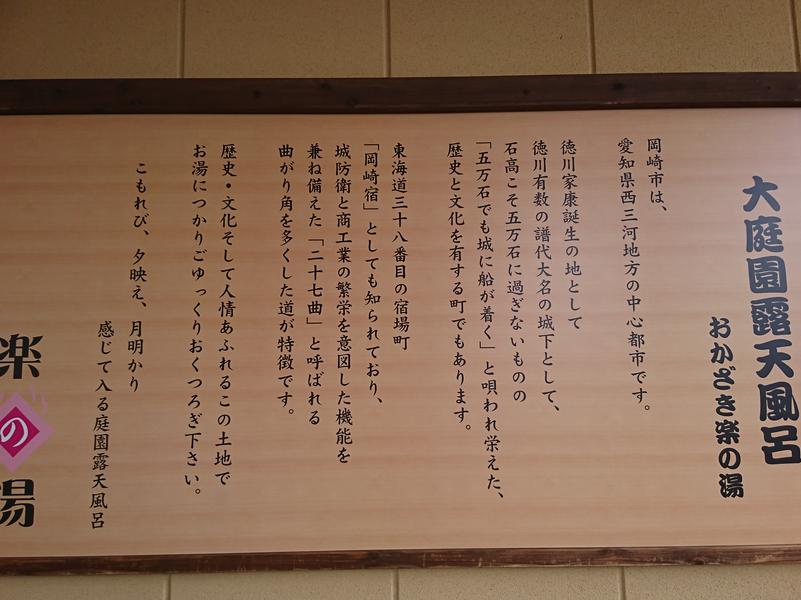 大庭園露天風呂
おかざき楽の湯
岡崎市は、
愛知県西三河地方の中心都市です。
徳川家康誕生の地として
徳川有数の譜代大名の城下として、
石高こそ五万石に過ぎないものの
「五万石でも城に船が着く」と唄われ栄えた、
歴史と文化を有する町でもあります。
東海道三十八番目の宿場町
「岡崎宿」としても知られており、
城防衛と商工業の繁栄を意図した機能を
兼ね備えた「二十七曲」と呼ばれる
曲がり角を多くした道が特徴です。
歴史・文化そして人情あふれるこの土地で
お湯につかりごゆっくりおくつろぎ下さい。
こもれび、夕映え、月明かり
感じて入る庭園露天風呂
楽の湯